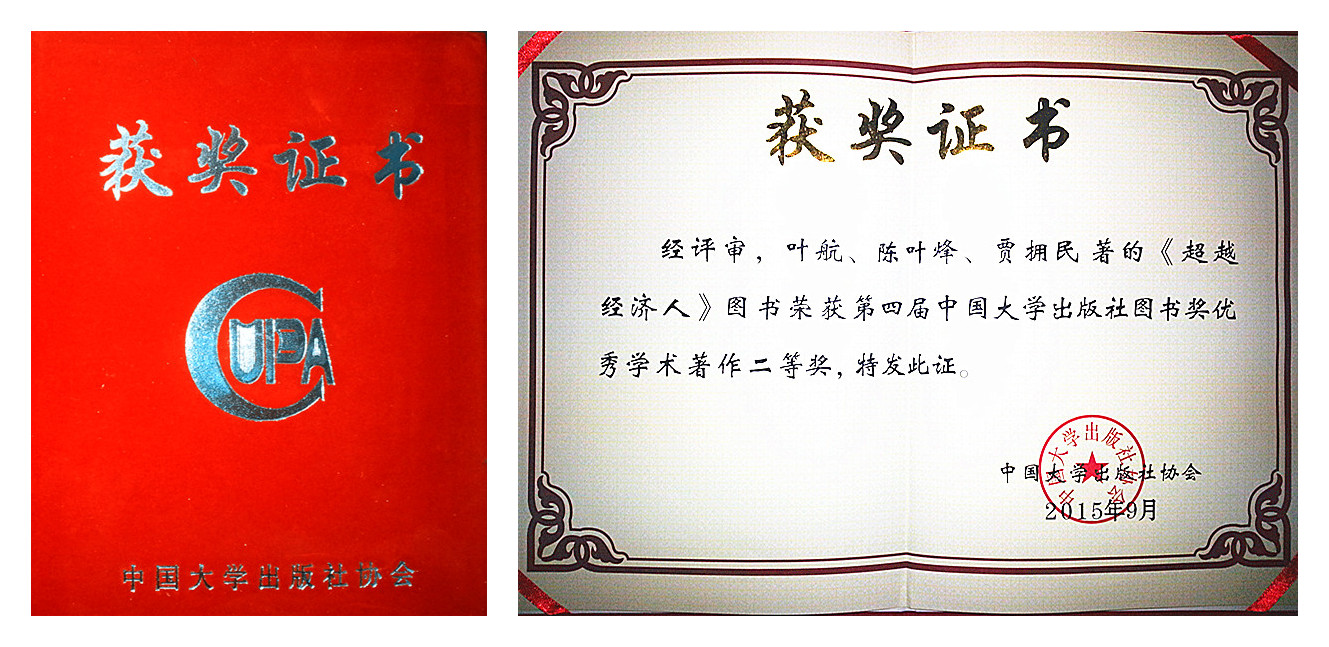 获奖证书
CUPA
中国大学出版社协会
获奖证书
经评审，叶航、陈叶烽、贾拥民著的《超越
经济人》图书荣获第四届中国大学出版社图书奖优
秀学术著作二等奖，特发此证。
中国大学出版社协会
2015年9月
中国大学出版社协会